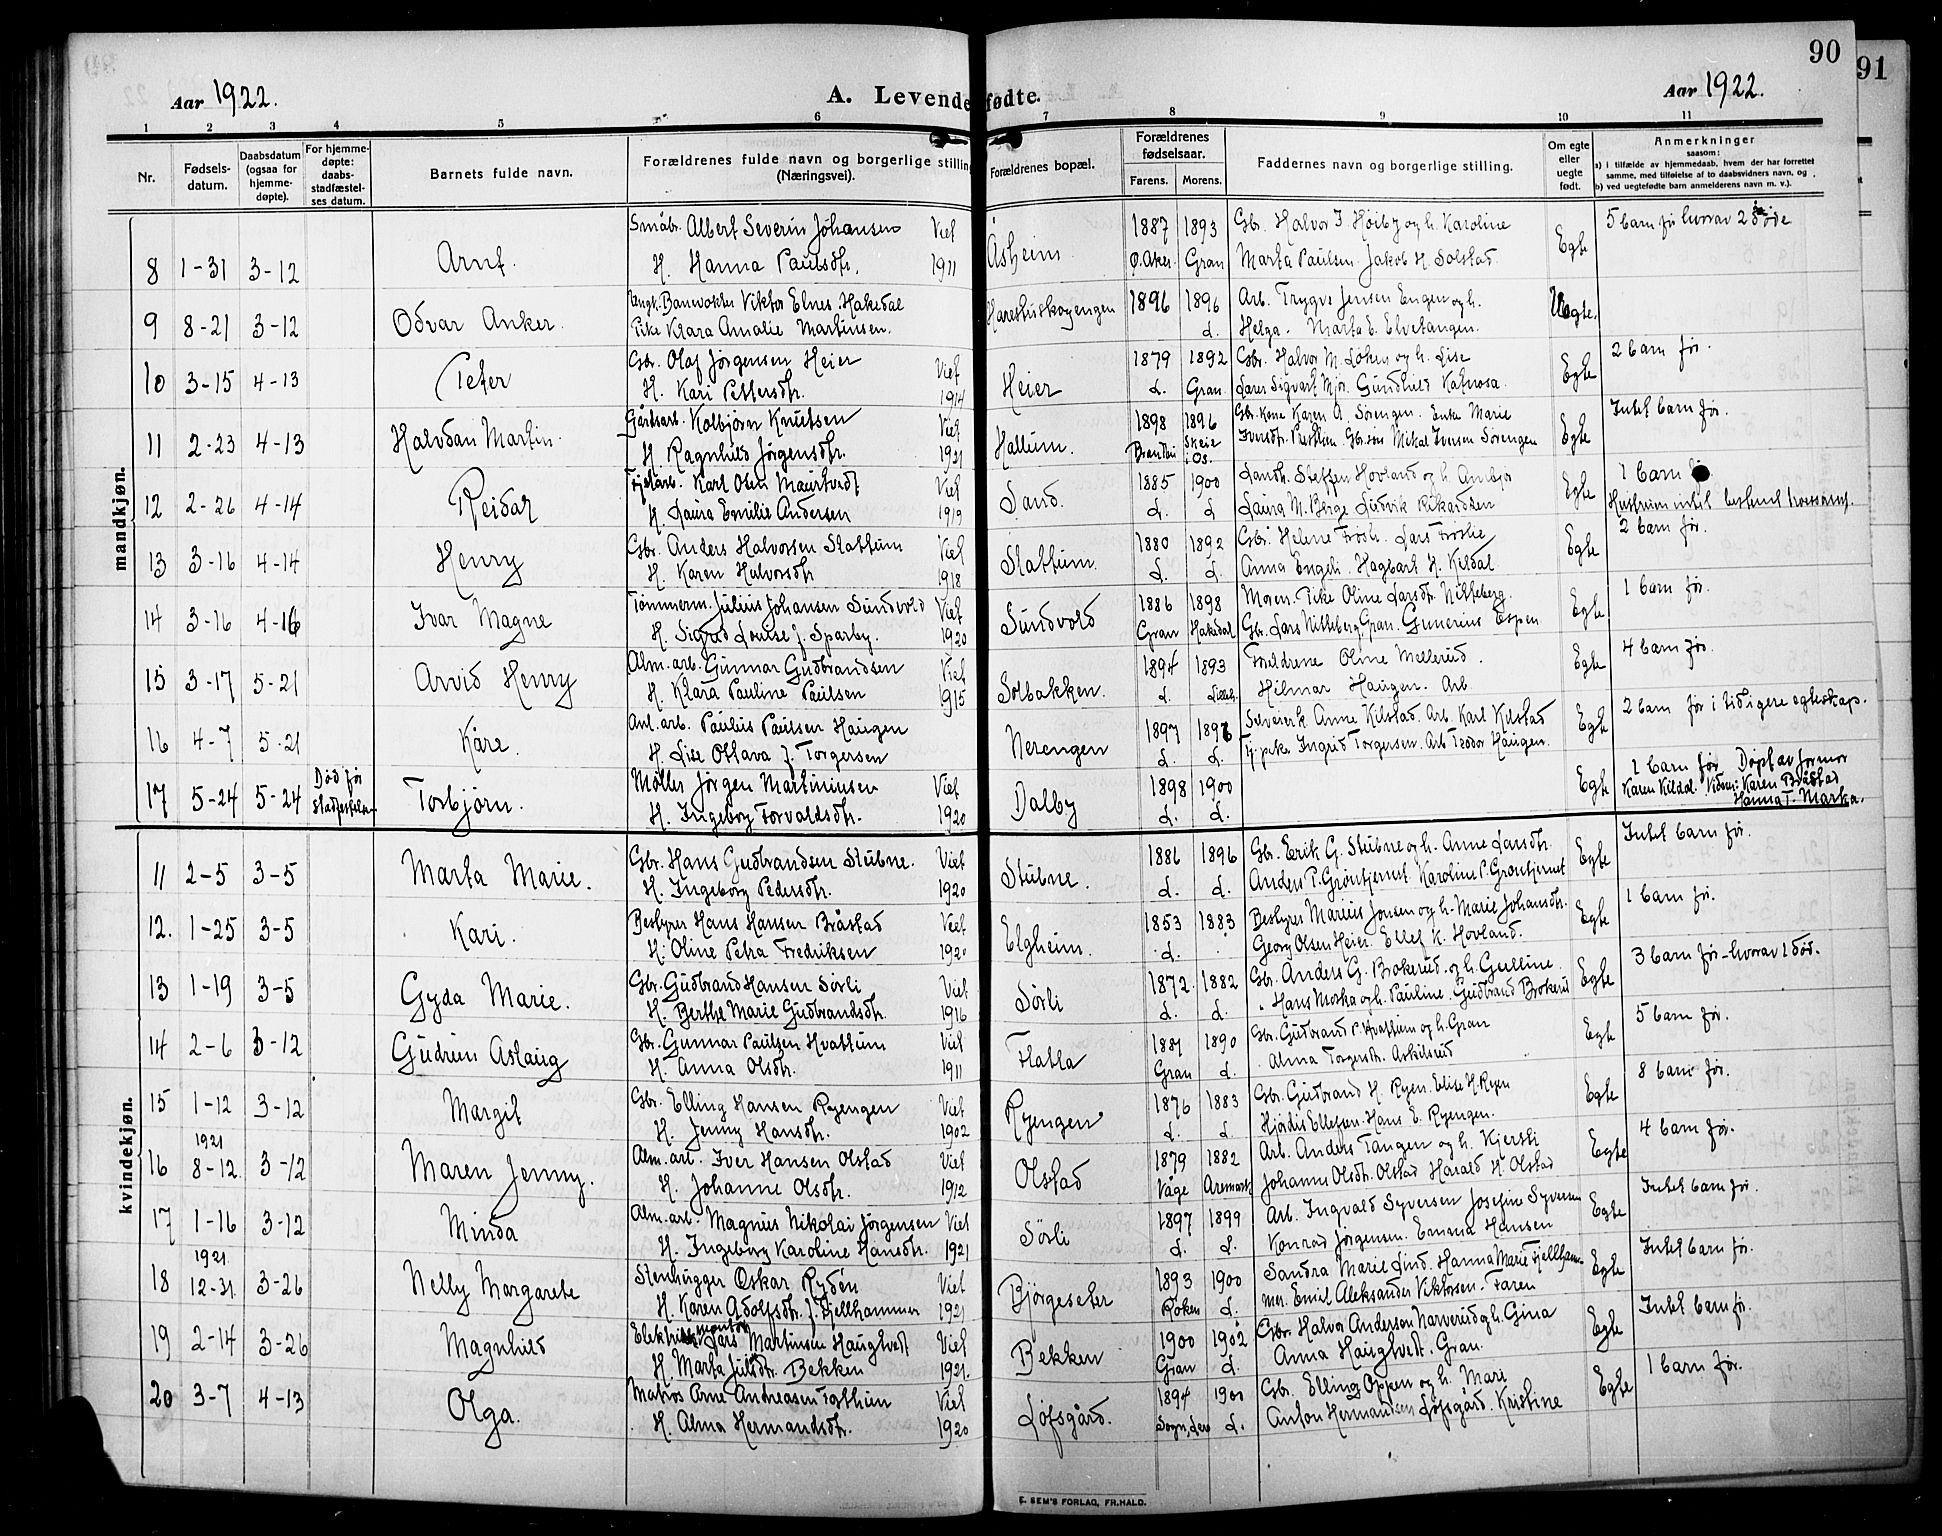 90
91
Aar 1922.
A. Levendefødte.
Aar 1922.
1 2 3 4 5 6 7 8 9 10 11
Nr.
Fødsels-
datum.
Daabsdatum
(ogsaa for
hjemme-
døpte).
For hjemme-
døpte:
daabs-
stadfæstel-
ses datum.
Barnets fulde navn.
Forældrenes fulde navn og borgerlige stilling
(Næringsvei).
Forældrenes bopæl.
Forældrenes
fødselsaar.
Farens. Morens.
Faddernes navn og borgerlige stilling.
Om egte
eller
uegte
født.
Anmerkninger
saasom:
a) i tilfælde av hjemmedaab, hvem der har forrettet
samme, med tilføielse af to daabsvidners navn, og
b) ved uegtefødte barn anmelderens navn m. v.).
mandkjøn.
Småbr. Albert Severin Johansen Viet 1887 1893 Gbr. Halvor J. Høiby og h. Karoline 5 barn før hvorav 2 døde
8 1-31 3-12 Arnt. H. Hanna Paulsdtr. 1911 Åsheim Ø. Aker Gran Marta Paulsen Jakob H. Solstad Egte
Ungk. Banevokter Viktor Elnes, Hakedal 1896 1896 Arb. Trygve Jensen Engen og h.
9 8-21 3-12 Odvar Anker. Pike Klara Amalie Martinsen. Harestuskogengen d. Helga. Marta E. Elvetangen. Uegte.
Gbr. Olaf Jørgensen Heier Viet 1879 1892 Gbr. Halvor M. Løken og h. Lise 2 barn før.
10 3-15 4-13 Peter H. Kari Pettersdtr. 1914 Heier d. Gran. Lars Sigvart Mjør. Gundhild Katnosa. Egte
Gårdsarb. Kolbjørn Knutsen Viet 1898 1896 Gbr. Kone Karen A. Sørengen. Enke Marie Intet barn før.
11 2-23 4-13 Halvdan Martin. H. Ragnhild Jørgensdtr. 1921 Hallum. Brandbu Skeie i Os. Iversdtr. Gbr. søn Mikal Iversen Sørengen Egte
Karl Olsen Viet 1885 1900 Landh. Steffen Hovland og h. Annbjør 1 barn
12 2-26 4-14 Reidar H. Laura Emilie Andersen 1919 Sand. d. d. Laura M. Berge Ludvik Rikardsen Egte
Gbr. Anders Halvorsen Slattum Viet 1880 1892 Gbr. Helene Frøsli. Lars Frøslie 2 barn før.
13 3-16 4-14 Henry H. Karen Halvorsdtr 1918 Slattum. d. d. Anna Engeli. Hagbart H. Kildal Egte
Tømmerm. Julius Johansen Sundvold Viet 1886 1898 Moren. Pike Oline Larsdtr. Nitteberg. 1 barn før.
14 3-16 4-16 Ivar Magne H. Sigrid Louise f. Sparby. 1920 Sundvold Gran Hakedal Gbr. Lars Nitteberg, Gran. Gunerius Espen Egte
Alm. arb. Gunnar Gudbrandsen Viet 1894 1893 Forældrene Oline Mellerud. 4 barn før.
15 3-17 5-21 Arvid Henry H. Klara Pauline Paulsen 1915 Solbakken. d. Hilmar Haugen. Arb. Egte
Anl. arb. Paulus Paulsen Haugen 1897 1896 Selveierk Anne Kilstad. Arb. Karl Kilstad 2 barn før i tidligere egteskap.
16 4-7 5-21 Kåre. H. Lise Ottava f. Torgersen Nerengen d. d. Tj. pike Ingrid Torgersen. Arb Teodor Haugen. Egte
Møller Jørgen Martiniusen Viet 1898 1900 1 barn før Døpt av formor
17 5-24 5-24 Død før stadfestelsen Torbjørn. H. Ingeborg Torvaldsdtr. 1920 Dalby d. d. Egte Karen Kildal. Vidner: Karen Bråstad
Hanna T. Marka.
kvindekjøn.
Gbr. Hans Gudbrandsen Stubne. Viet 1886 1896 Gbr. Erik G. Stubne og h. Anne Larsdtr. Intet barn før.
11 2-5 3-5 Marta Marie. H. Ingeborg Pedersdtr. 1920 Stubne. d. d. Anders P. Grøntjernet Karoline P. Grøntjernet Egte
Bestyrer Hans Hansen Bråstad Viet 1853 1883 Bestyrer Marius Jonsen og h. Marie Johansdtr. 1 barn før.
12. 1-25 3-5 Kari. H. Oline Petra Fredriksen 1920 Elgheim. d. Georg Olsen Heier. Ellef K. Hovland. Egte
Gbr. Gudbrand Hansen Sørli Viet 1872 1882 Gbr. Anders G. Brokerud og h. Gulline 3 barn før - hvorav 1 død.
13 1-19 3-5 Gyda Marie. H. Berthe Marie Gudbrandsdtr. 1916 Sørli d. d. Hans Morka og h. Pauline. Gudbrand Brokerud Egte
Gbr. Gunnar Paulsen Hvattum Viet 1881 1890 Gbr. Gudbrand P. Hvattum og h. Gran 5 barn før.
14 2-6 3-12 Gudrun Aslaug H. Anna Olsdtr. 1911 Flatla Gran d. Alma Torgersdtr. Askilsrud Egte
Gbr. Elling Hansen Ryengen Viet 1876 1883 Gbr. Gudbrand H. Ryen. Elise H. Ryen 8 barn før.
15 1-12 3-12 Margit H. Jenny Hansdtr. 1902 Ryengen d. d. Hjørdis Ellefsen. Hans E. Ryengen. Egte
1921 Alm. arb. Iver Hansen Olstad Viet 1879 1882 Arb. Anders Tangen og h. Kjersti 4 barn før.
16 8-12 3-12 Maren Jenny. H. Johanne Olsdtr. 1912 Olstad Våge Aremark Johanne Olsdtr. Olstad Harald H. Olstad Egte
Alm. arb. Magnus Nikolai Jørgensen Viet 1897 1899 Arb. Ingvald Syversen Josefine Syversen Intet barn før.
17 1-16 3-12 Minda H. Ingeborg Karoline Hansdtr. 1921 Sørli d. d. Konrad Jørgensen. Emma Hansen Egte
1921 Stenhugger Oskar Rydén Viet 1893 1900 Sandra Marie Lind. Hanna Marie Fjellham- Intet barn før.
18 12-31 3-26 Nelly Margarete H. Karen Adolfsdtr. f. Fjellhammer 1921 Bjørgeseter Røken d. mer. Emil Aleksander Viktorsen. Faren Egte
Elektrisk montør Lars Martinsen Haugtvedt Viet 1900 1902 Gbr. Halvor Andersen Narverud og h. Gina Intet barn før.
19 2-14 3-26 Magnhild H. Marta Juelsdtr. Bekken 1921. Bekken Gran d. Anna Haugtvedt. Gran. Egte
Matros Arne Andreasen Viet 1894 1900 Gbr. Elling Oppen og h. Mari 1 barn før.
20 3-7 4-13 Olga. H. Alma Hermandsdtr. 1920 Løfsgård. d. Anton Hermandsen Løfsgård. Kristine Egte
E. SEM'S FORLAG, FR.HALD.